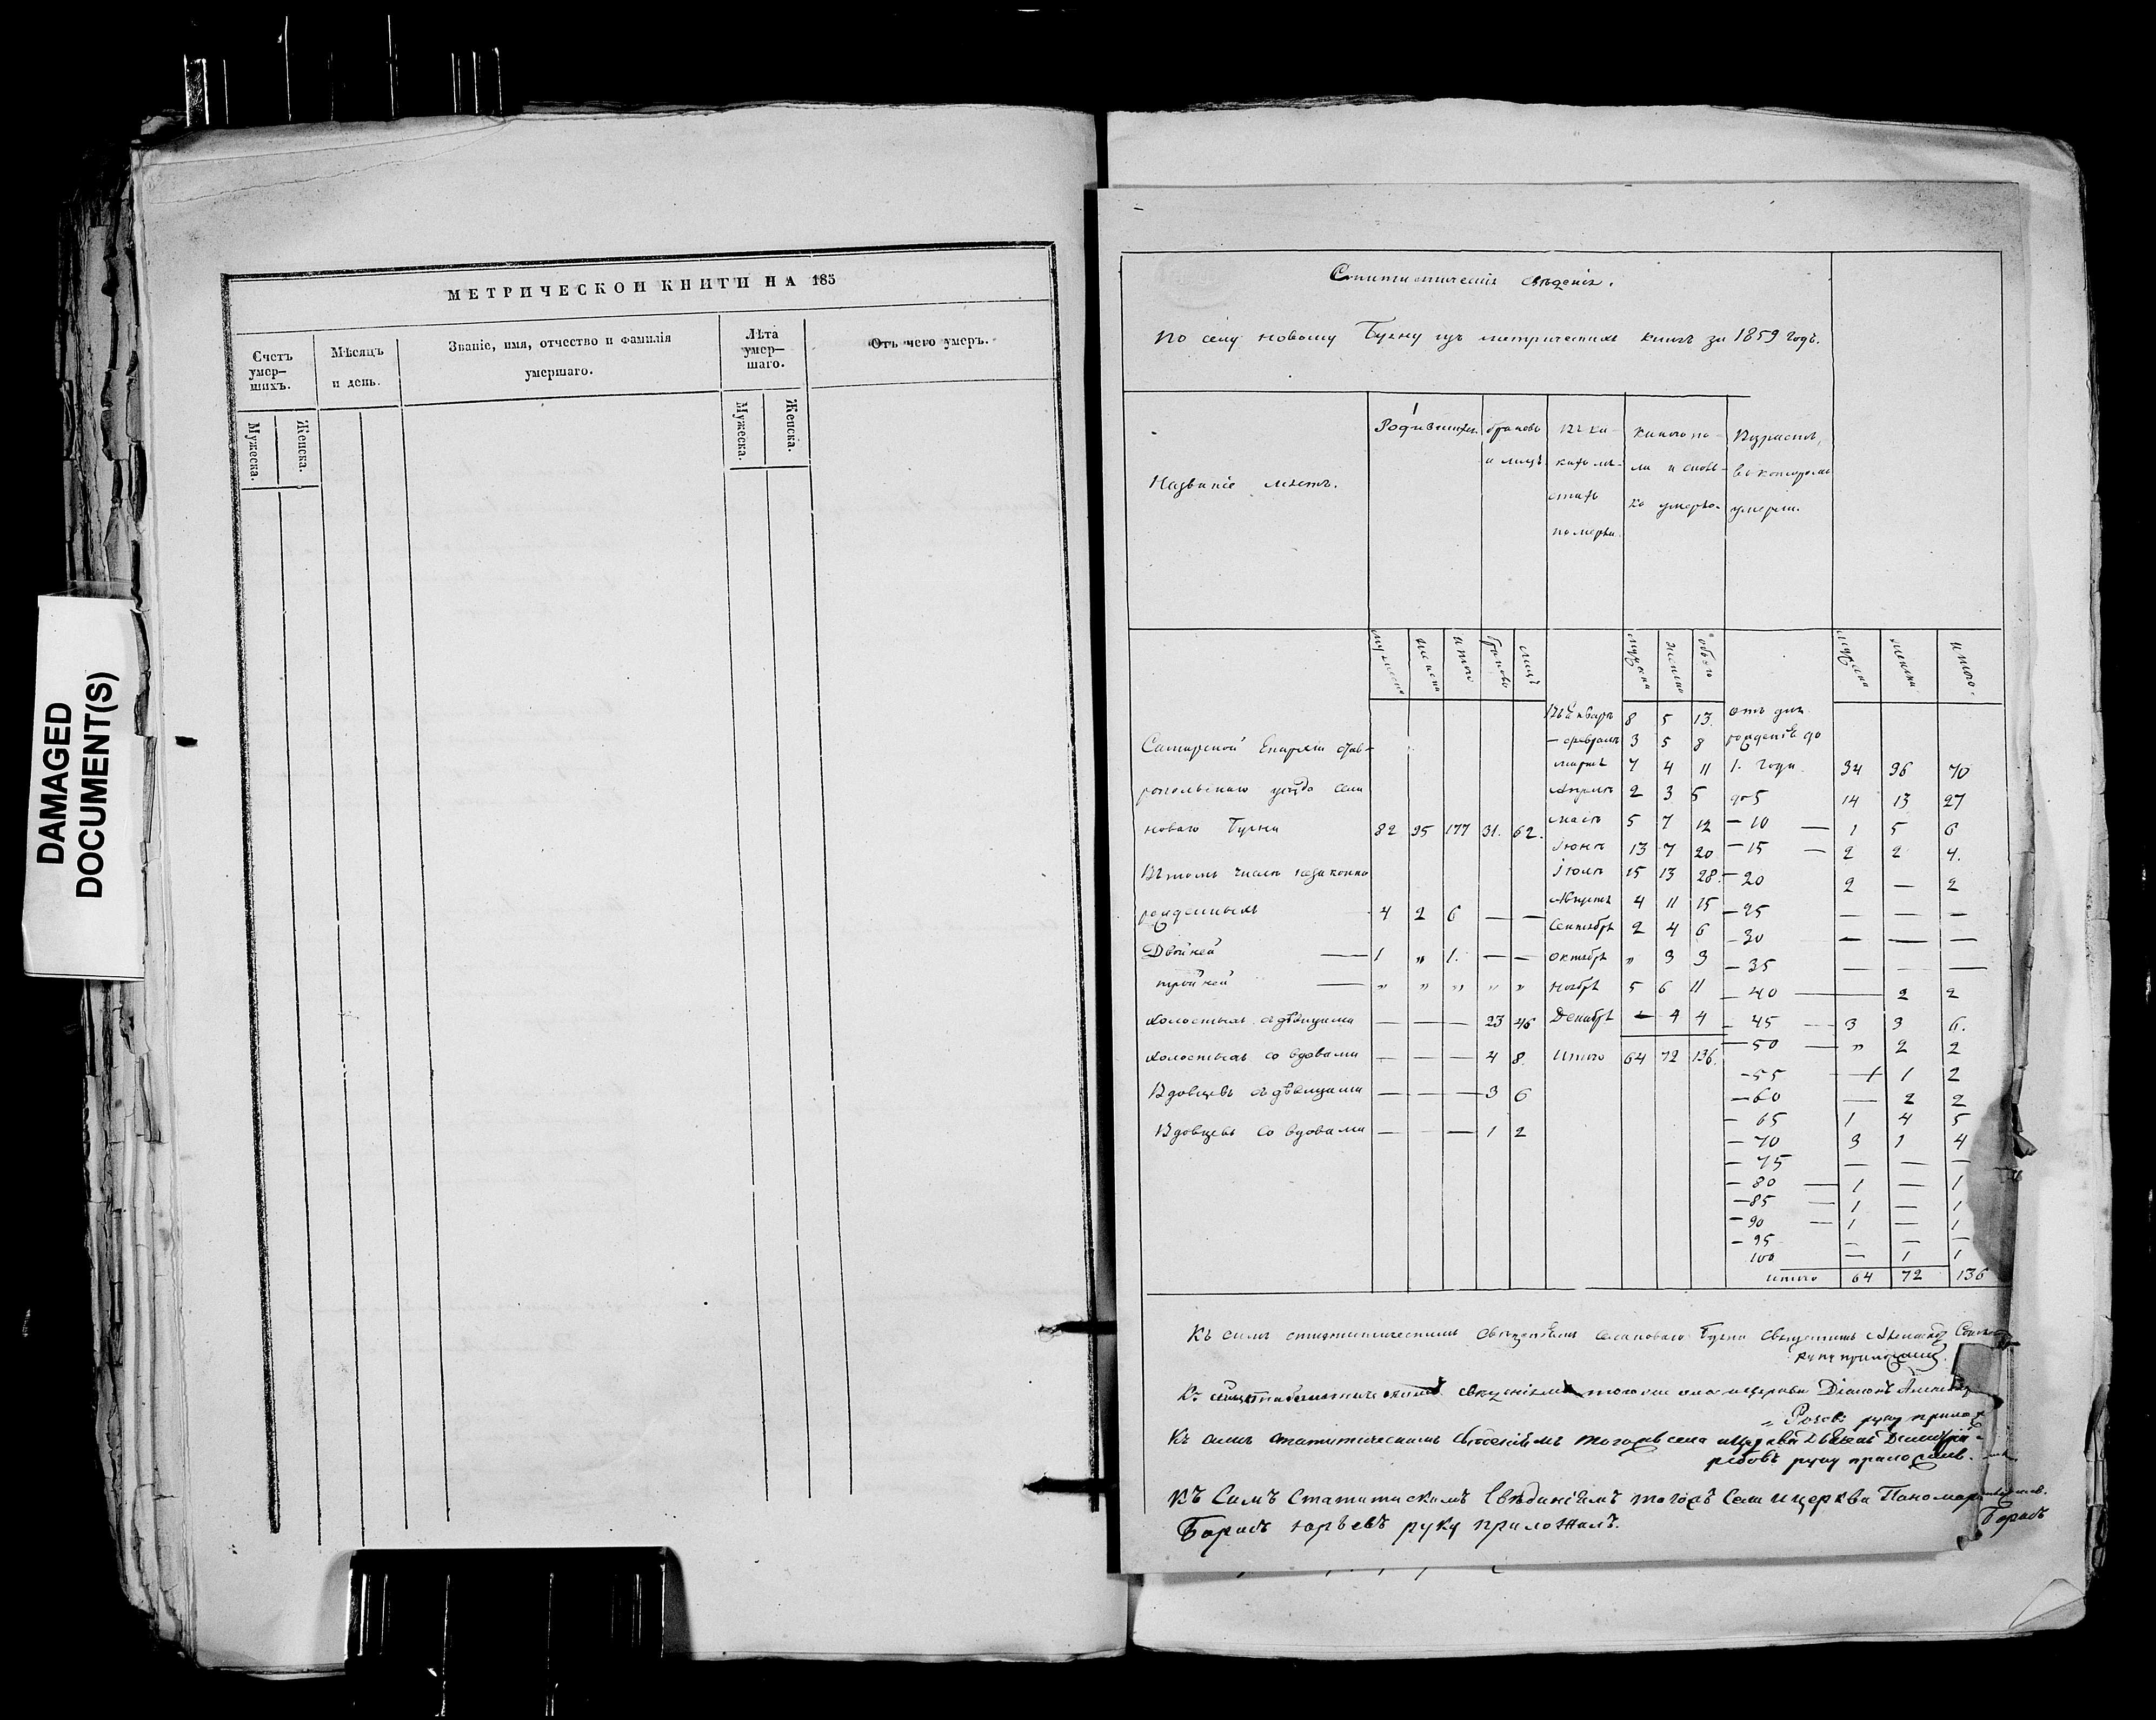 МЕТРИЧЕСКОЙ КНИГИ НА 185
Счетъ умер– шихъ.
Мѣсяцъ и день.
Званіе, имя, отчество и фамилія умершаго.
Лѣта умер– шаго.
Отъ чего умеръ.
Мужеска.
Женска.
Мужеска.
Женска.
DAMAGED
DOCUMENT(S)
Статистическія свѣденія.
По селу новому Буяну изъ метрическихъ книгъ за 1859 годъ.
Названіе мѣстъ.
Родившихся.
браковъ и лицъ
въ какихъ мѣстахъ померли
какого по- ла и сколь- ко умерло.
Возрастъ, въ которомъ умерли.
мужеска женска итого браковъ лицъ мужеска женска обоего мужеска женска итого.
Въ Январѣ 8 5 13. отъ дня
— февралѣ 3 5 8 рожденія до
мартѣ 7 4 11 1. года. 34 36 70
Апрѣлѣ 2 3 5 до 5 14 13 27
маѣ 5 7 12 — 10 — 1 5 6
Іюнѣ 13 7 20 — 15 — 2 2 4.
Іюлѣ 15 13 28. — 20 2 — 2
Августѣ 4 11 15 — 25 — — —
Сентябрѣ 2 4 6 — 30 — — —
октябрѣ „ 3 3 — 35 — — —
ноябрѣ 5 6 11 — 40 — 2 2
Декабрѣ — 4 4 — 45 — 3 3 6.
Итого 64 72 136. — 50 — „ 2 2
— 55 — 1 1 2
— 60 — 2 2
— 65 1 4 5
— 70 3 1 4
— 75 — — —
— 80 — 1 — 1
— 85 — 1 — 1
— 90 — 1 — 1
— 95 — — —
100 — 1 1
итого 64 72 136
Самарской Епархіи Став-
ропольскаго уѣзда села
новаго Буяна 82 95 177 31. 62.
Въ томъ числѣ незаконно
рожденныхъ 4 2 6 — —
Двойней — 1 „ 1. — —
тройней — „ „ „ „ „
холостыхъ съ дѣвицами — — — 23 46
холостыхъ со вдовами — — — 4 8.
Вдовцевъ съ дѣвицами — — — 3 6
Вдовцевъ со вдовами — — — 1 2
Къ симъ статистическимъ свѣденіямъ села новаго Буяна священникъ
руку приложилъ.
Къ свѣденіямъ тогоже села и церкви Діаконъ
руку прилож
Къ симъ статитическимъ свѣденіемъ тогожъ села и церкви
руку приложилъ.
Къ Симъ Статитискимъ Свѣдинiемъ тогожъ Села и церкви Пономарь
руку приложилъ.